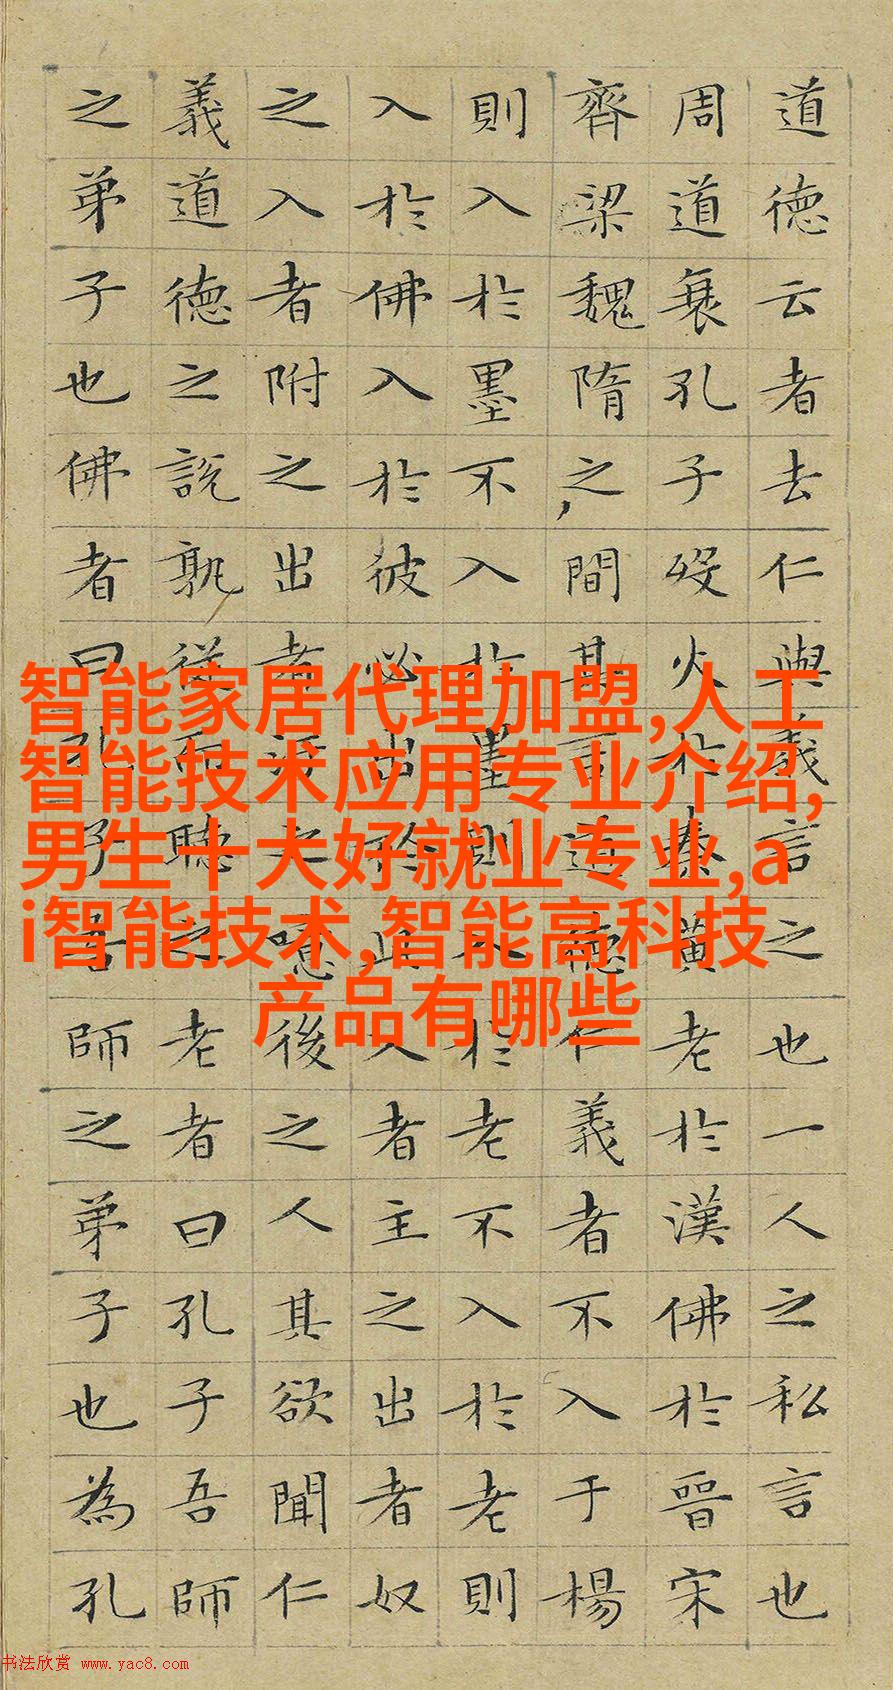 道德云者去仁與義言之也一人之私言也
周道衰孔子歿火於秦黃老於漢佛於晉宋
齊梁魏隋之間其言道德仁義者不入于楊
則入於墨不入於墨則入於老不入於老則
入於佛入於彼必出於此入者主之出者奴
之入者附之出者汙之噫後之人其欲聞仁
義道德之說孰從而聽之老者曰孔子吾師
之弟子也佛者曰孔子吾師之弟子也為孔
智能家居代理加盟,人工
智能技术应用专业介绍,
男生十大好就业专业,a
i智能技术,智能高科技
产品有哪些
书法欣赏 www.yac8.com